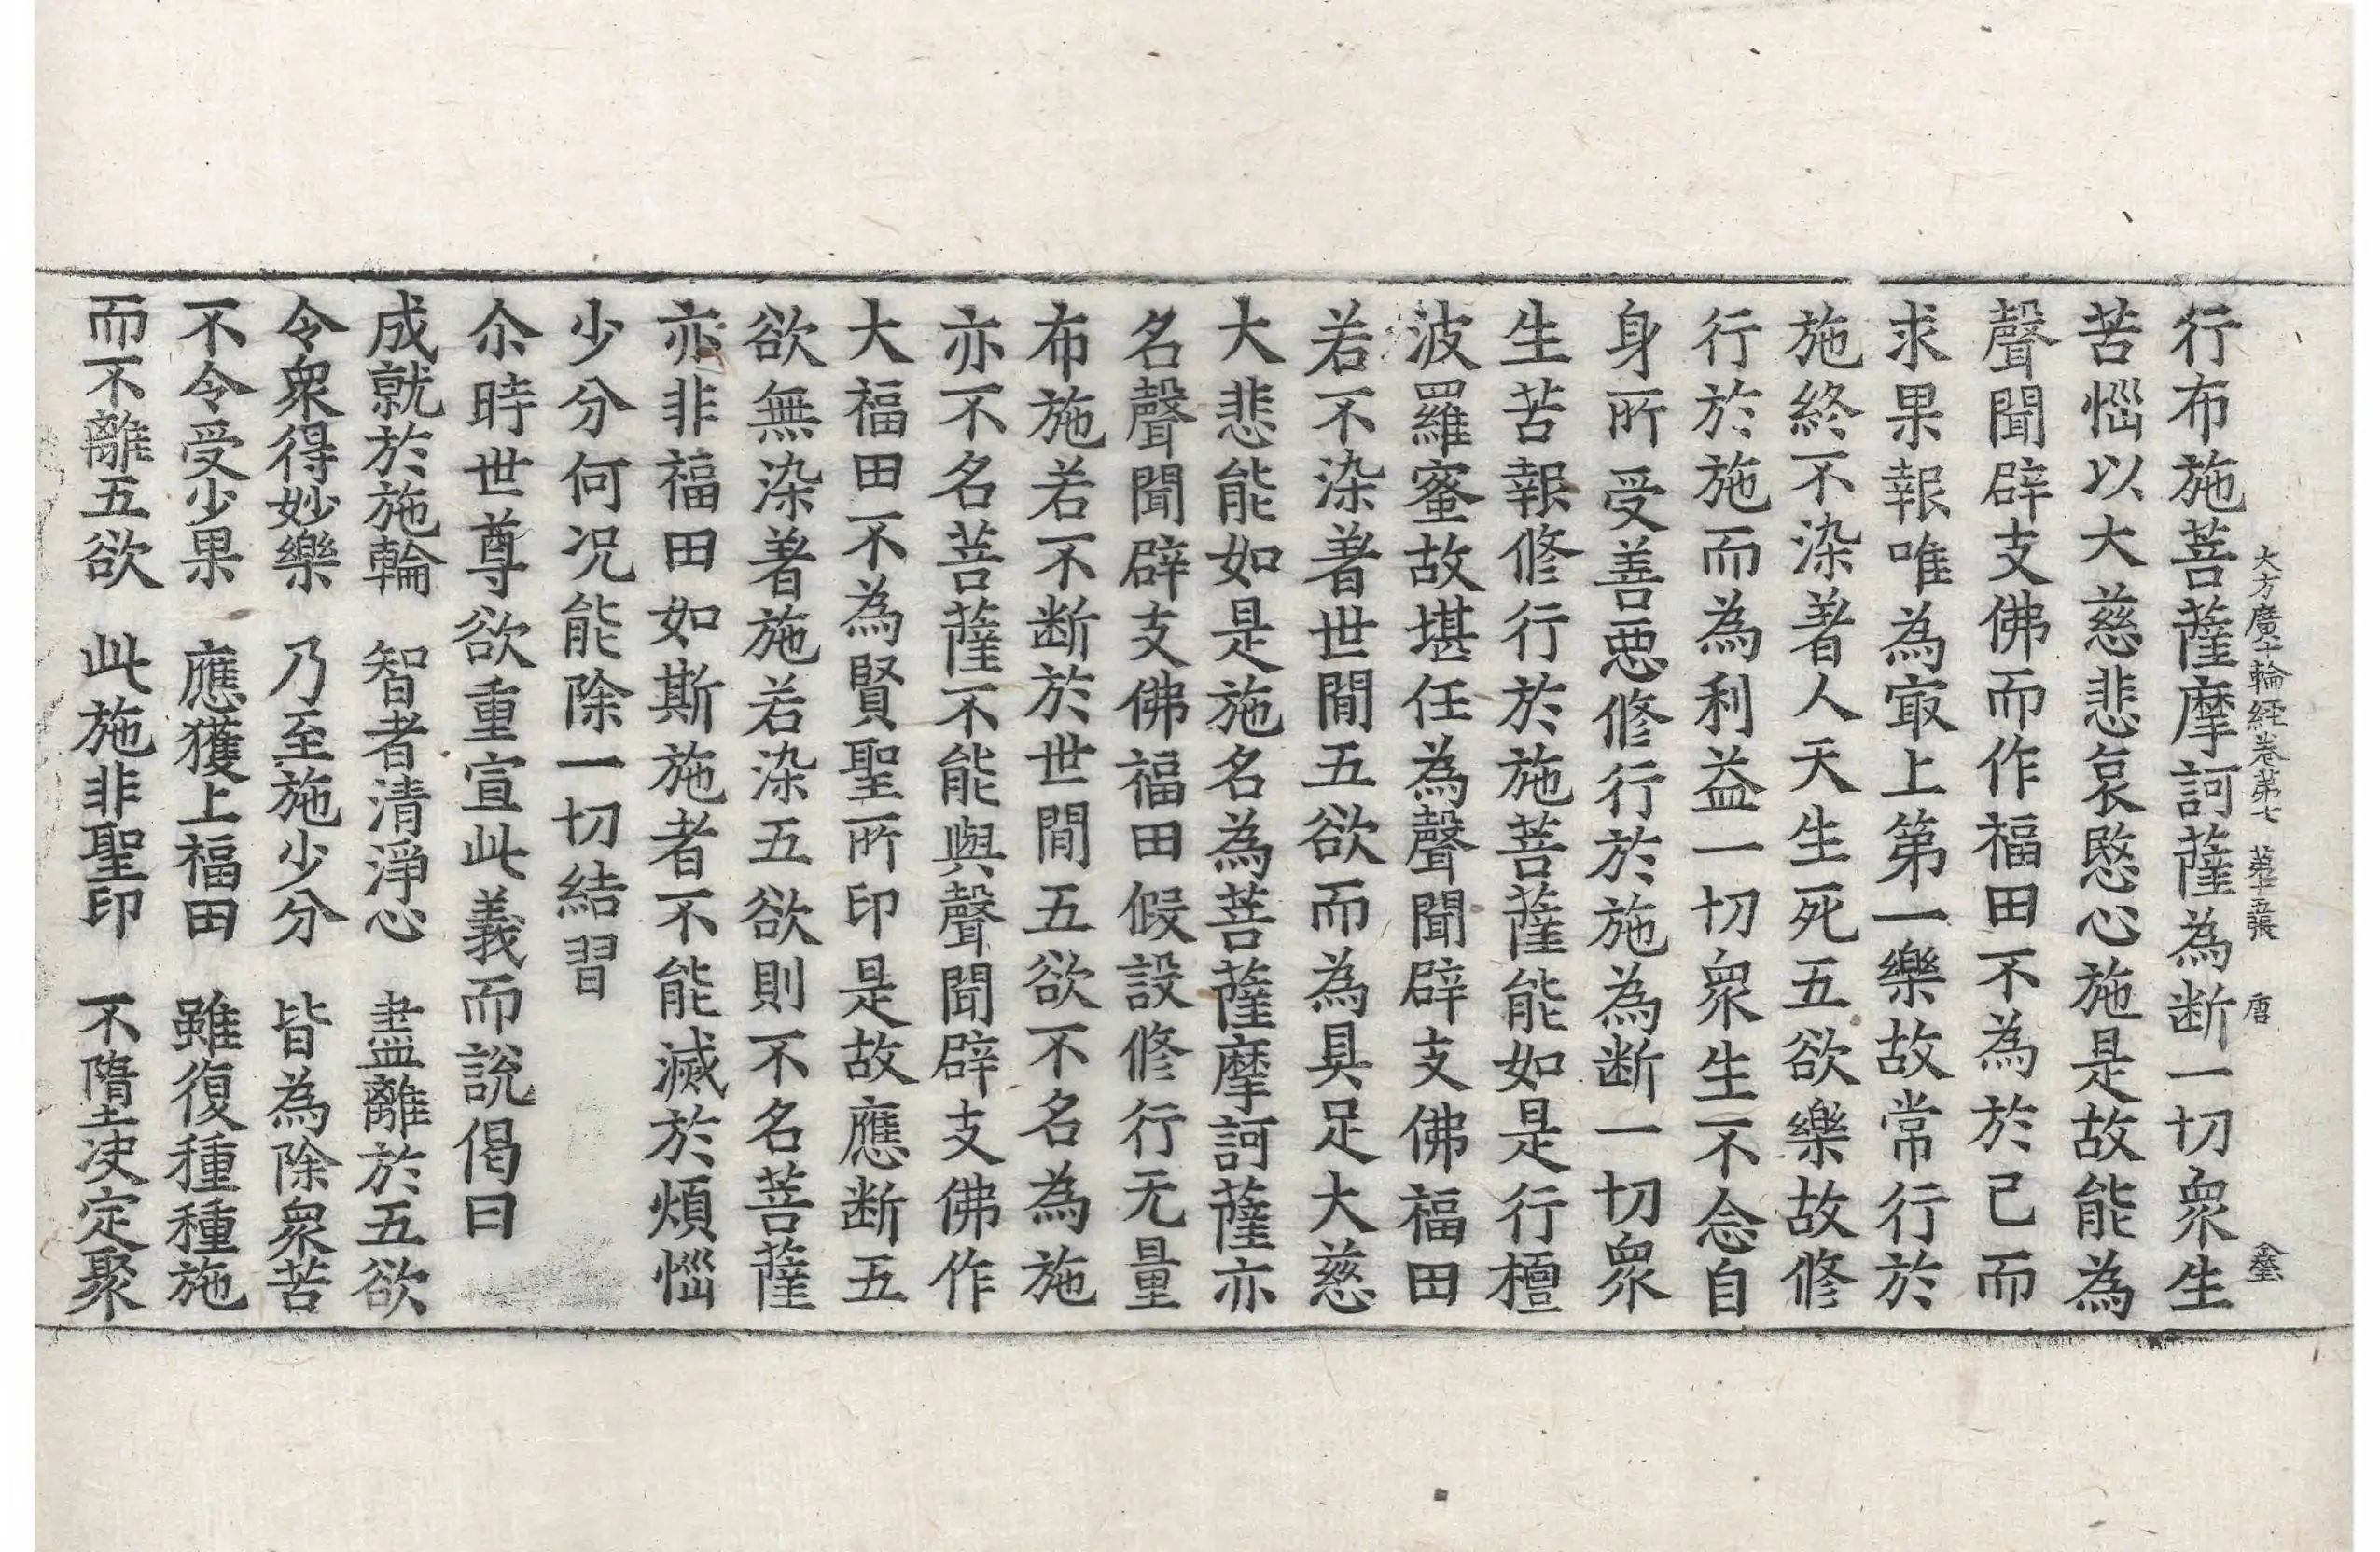 大方廣十輪經卷第七 第十五張 唐
行布施菩薩摩訶薩為断一切衆生
苦惱以大慈悲哀愍心施是故能為
聲聞辟支佛而作福田不為於己而
求果報唯為㝡上第一樂故常行於
施終不染著人天生死五欲樂故修
行於施而為利益一切衆生不念自
身所受善惡修行於施為断一切衆
生苦報修行於施菩薩能如是行檀
波羅蜜故堪任為聲聞辟支佛福田
若不染著世閒五欲而為具足大慈
大悲能如是施名為菩薩摩訶薩亦
名聲聞辟支佛福田假設修行无量
布施若不断於世閒五欲不名為施
亦不名菩薩不能與聲聞辟支佛作
大福田不為賢聖所印是故應断五
欲無染著施若染五欲則不名菩薩
亦非福田如斯施者不能滅於煩惱
少分何況能除一切結習
尒時世尊欲重宣此義而說偈曰
成就於施輪 智者清淨心 盡離於五欲
令衆得妙樂 乃至施少分 皆為除衆苦
不令受少果 應獲上福田 雖復種種施
而不離五欲 此施非聖印 不墮决定聚